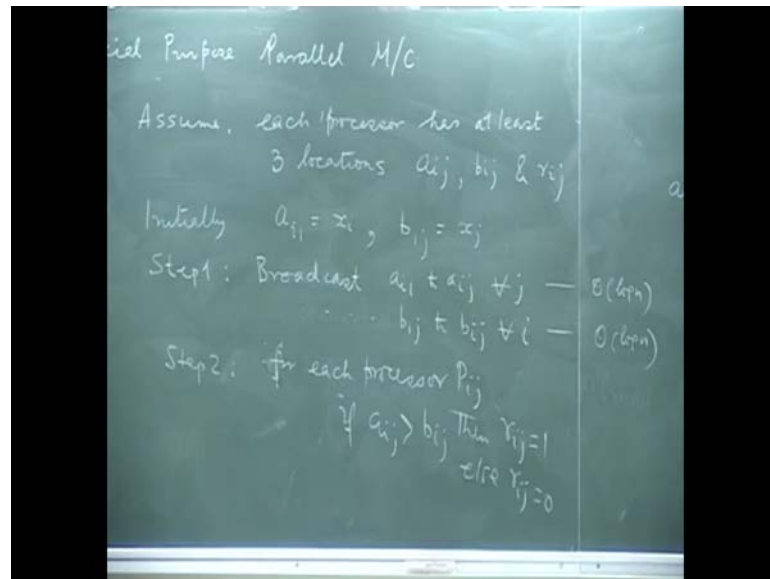 cial Purpose Parallel M/C
Assume. each processor has at least
3 locations aij, bij & rij
a
Initially ai1 = xi, b1j = xj
Step1: Broadcast ai1 to aij ∀j — O(logn)
b1j to bij ∀i — O(logn)
Step2: for each processor Pij
if aij > bij Then rij=1
else rij=0